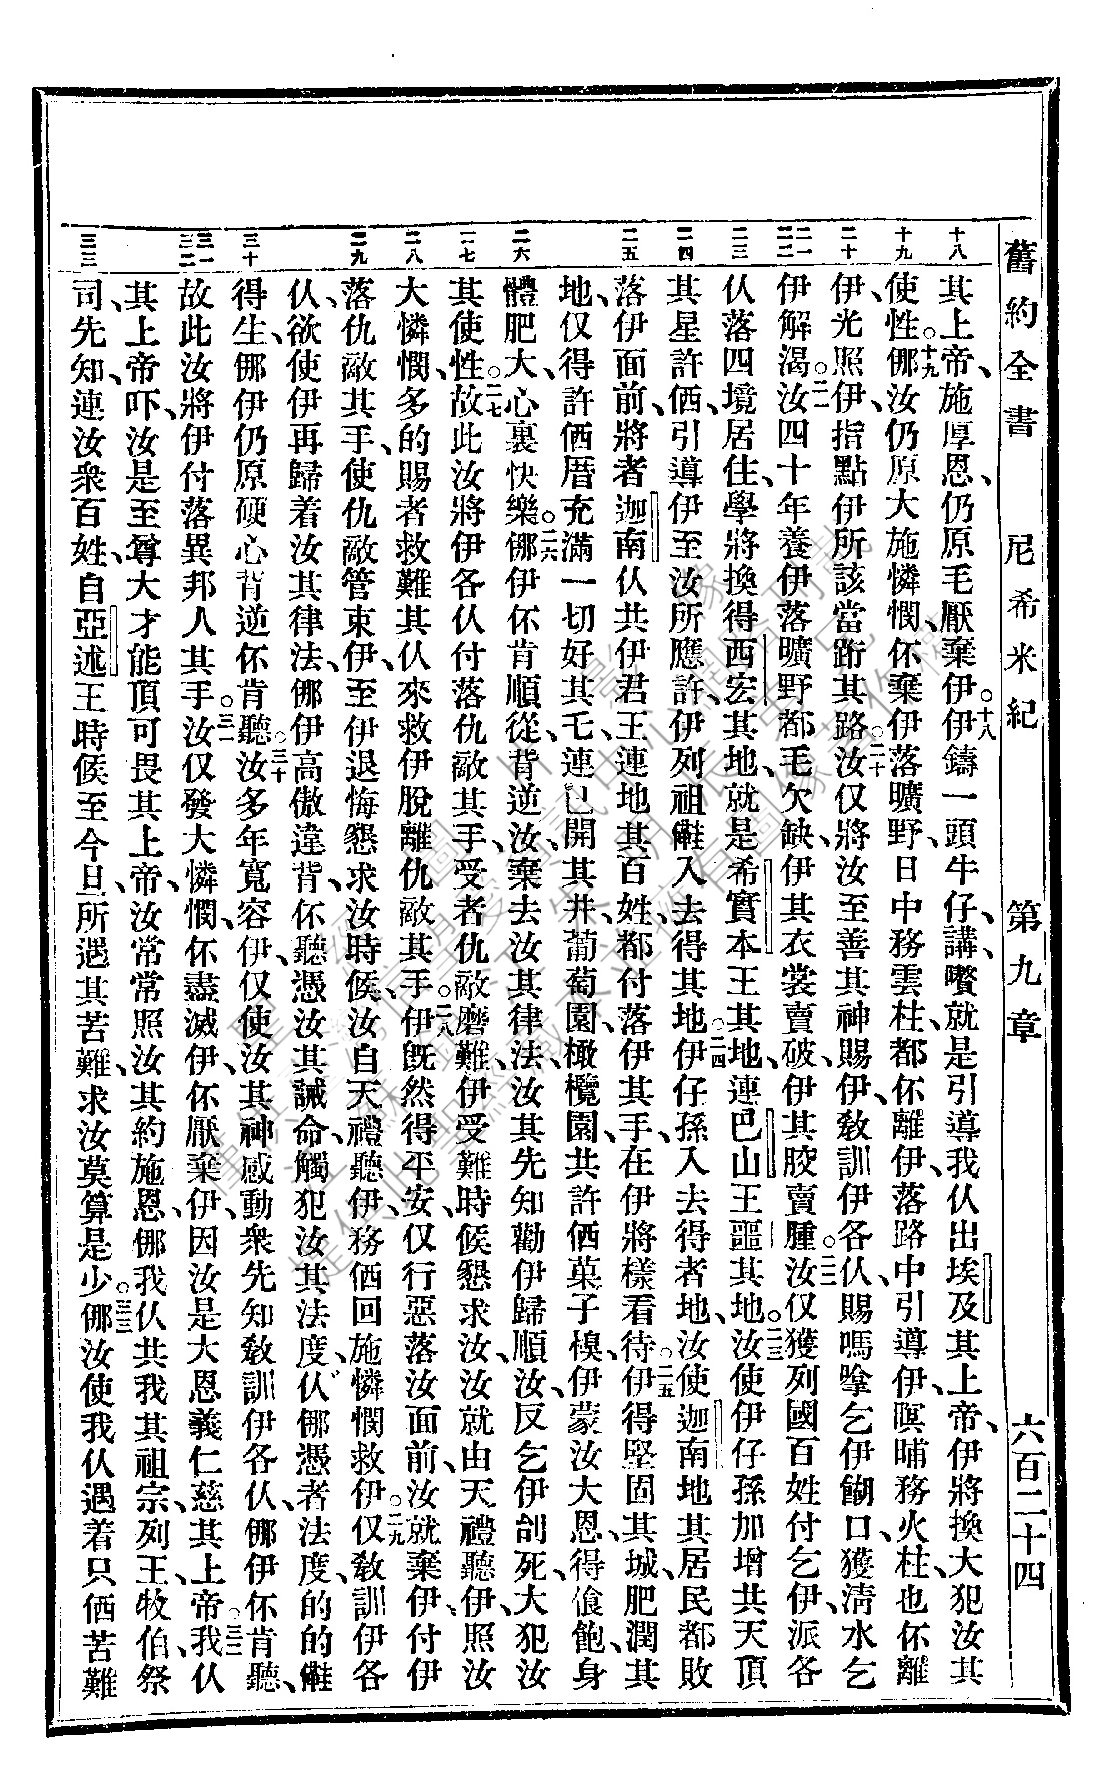 舊約全書　尼希米紀　第九章　六百二十四
十八
其上帝、施厚恩、仍原毛厭棄伊。十八伊鑄一頭牛仔、講嚽就是引導我仈出埃及其上帝、伊將換大犯汝其
十九
使性。十九㑚汝仍原大施憐憫、伓棄伊落曠野、日中務雲柱、都伓離伊、落路中引導伊、暝晡務火柱、也伓離
二十
伊、光照伊、指點伊所該當𨀣其路。二十汝仅將汝至善其神賜伊、敎訓伊各仈、賜嗎嗱乞伊餬口、獲淸水乞
二一 二二
伊解渴。二一汝四十年養伊落曠野、都毛欠缺、伊其衣裳賣破、伊其骹賣腫。二二汝仅獲列國百姓付乞伊、派各
二三
仈落四境居住、學將換得西宏其地、就是希實本王其地、連巴山王噩其地。二三汝使伊仔孫加增共天頂
二四
其星許㑚、引導伊至汝所應許伊列祖𡅏入去得其地。二四伊仔孫入去得者地、汝使迦南地其居民都敗
二五
落伊面前、將者迦南仈共伊君王、連地其百姓、都付落伊其手、在伊將樣看待伊。二五得堅固其城、肥潤其
地、仅得許㑚厝充滿一切好其乇、連已開其井、葡萄園、橄欖園、共許㑚菓子樹、伊蒙汝大恩、得飱飽、身
二六
體肥大、心裏快樂。二六㑚伊伓肯順從、背逆汝、棄去汝其律法、汝其先知勸伊歸順汝、反乞伊刣死、大犯汝
二七
其使性。二七故此汝將伊各仈付落仇敵其手、受者仇敵磨難、伊受難時候、懇求汝、汝就由天禮聽伊、照汝
二八
大憐憫、多多的賜者救難其仈來救伊、脫離仇敵其手。二八伊旣然得平安、仅行惡落汝面前、汝就棄伊、付伊
二九
落仇敵其手、使仇敵管束伊、至伊退悔懇求汝時候、汝自天禮聽伊、務㑚回施憐憫救伊。二九仅敎訓伊各
仈、欲使伊再歸着汝其律法、㑚伊高傲違背、伓聽憑汝其誡命、觸犯汝其法度、仈㑚憑者法度、的的𡅏
三十
得生、㑚伊仍原硬心背逆伓肯聽。三十汝多年寬容伊、仅使汝其神感動衆先知敎訓伊各仈、㑚伊伓肯聽、
三一 三二
故此汝將伊付落異邦人其手。三一汝仅發大憐憫、伓盡滅伊、伓厭棄伊、因汝是大恩義仁慈其上帝。三二我仈
其上帝吓、汝是至尊大才能頂可畏其上帝、汝常常照汝其約施恩、㑚我仈共我其祖宗、列王、牧伯、祭
三三
司、先知、連汝衆百姓、自亞述王時候至今旦、所遇其苦難、求汝莫算是少。三三㑚汝使我仈遇着只㑚苦難